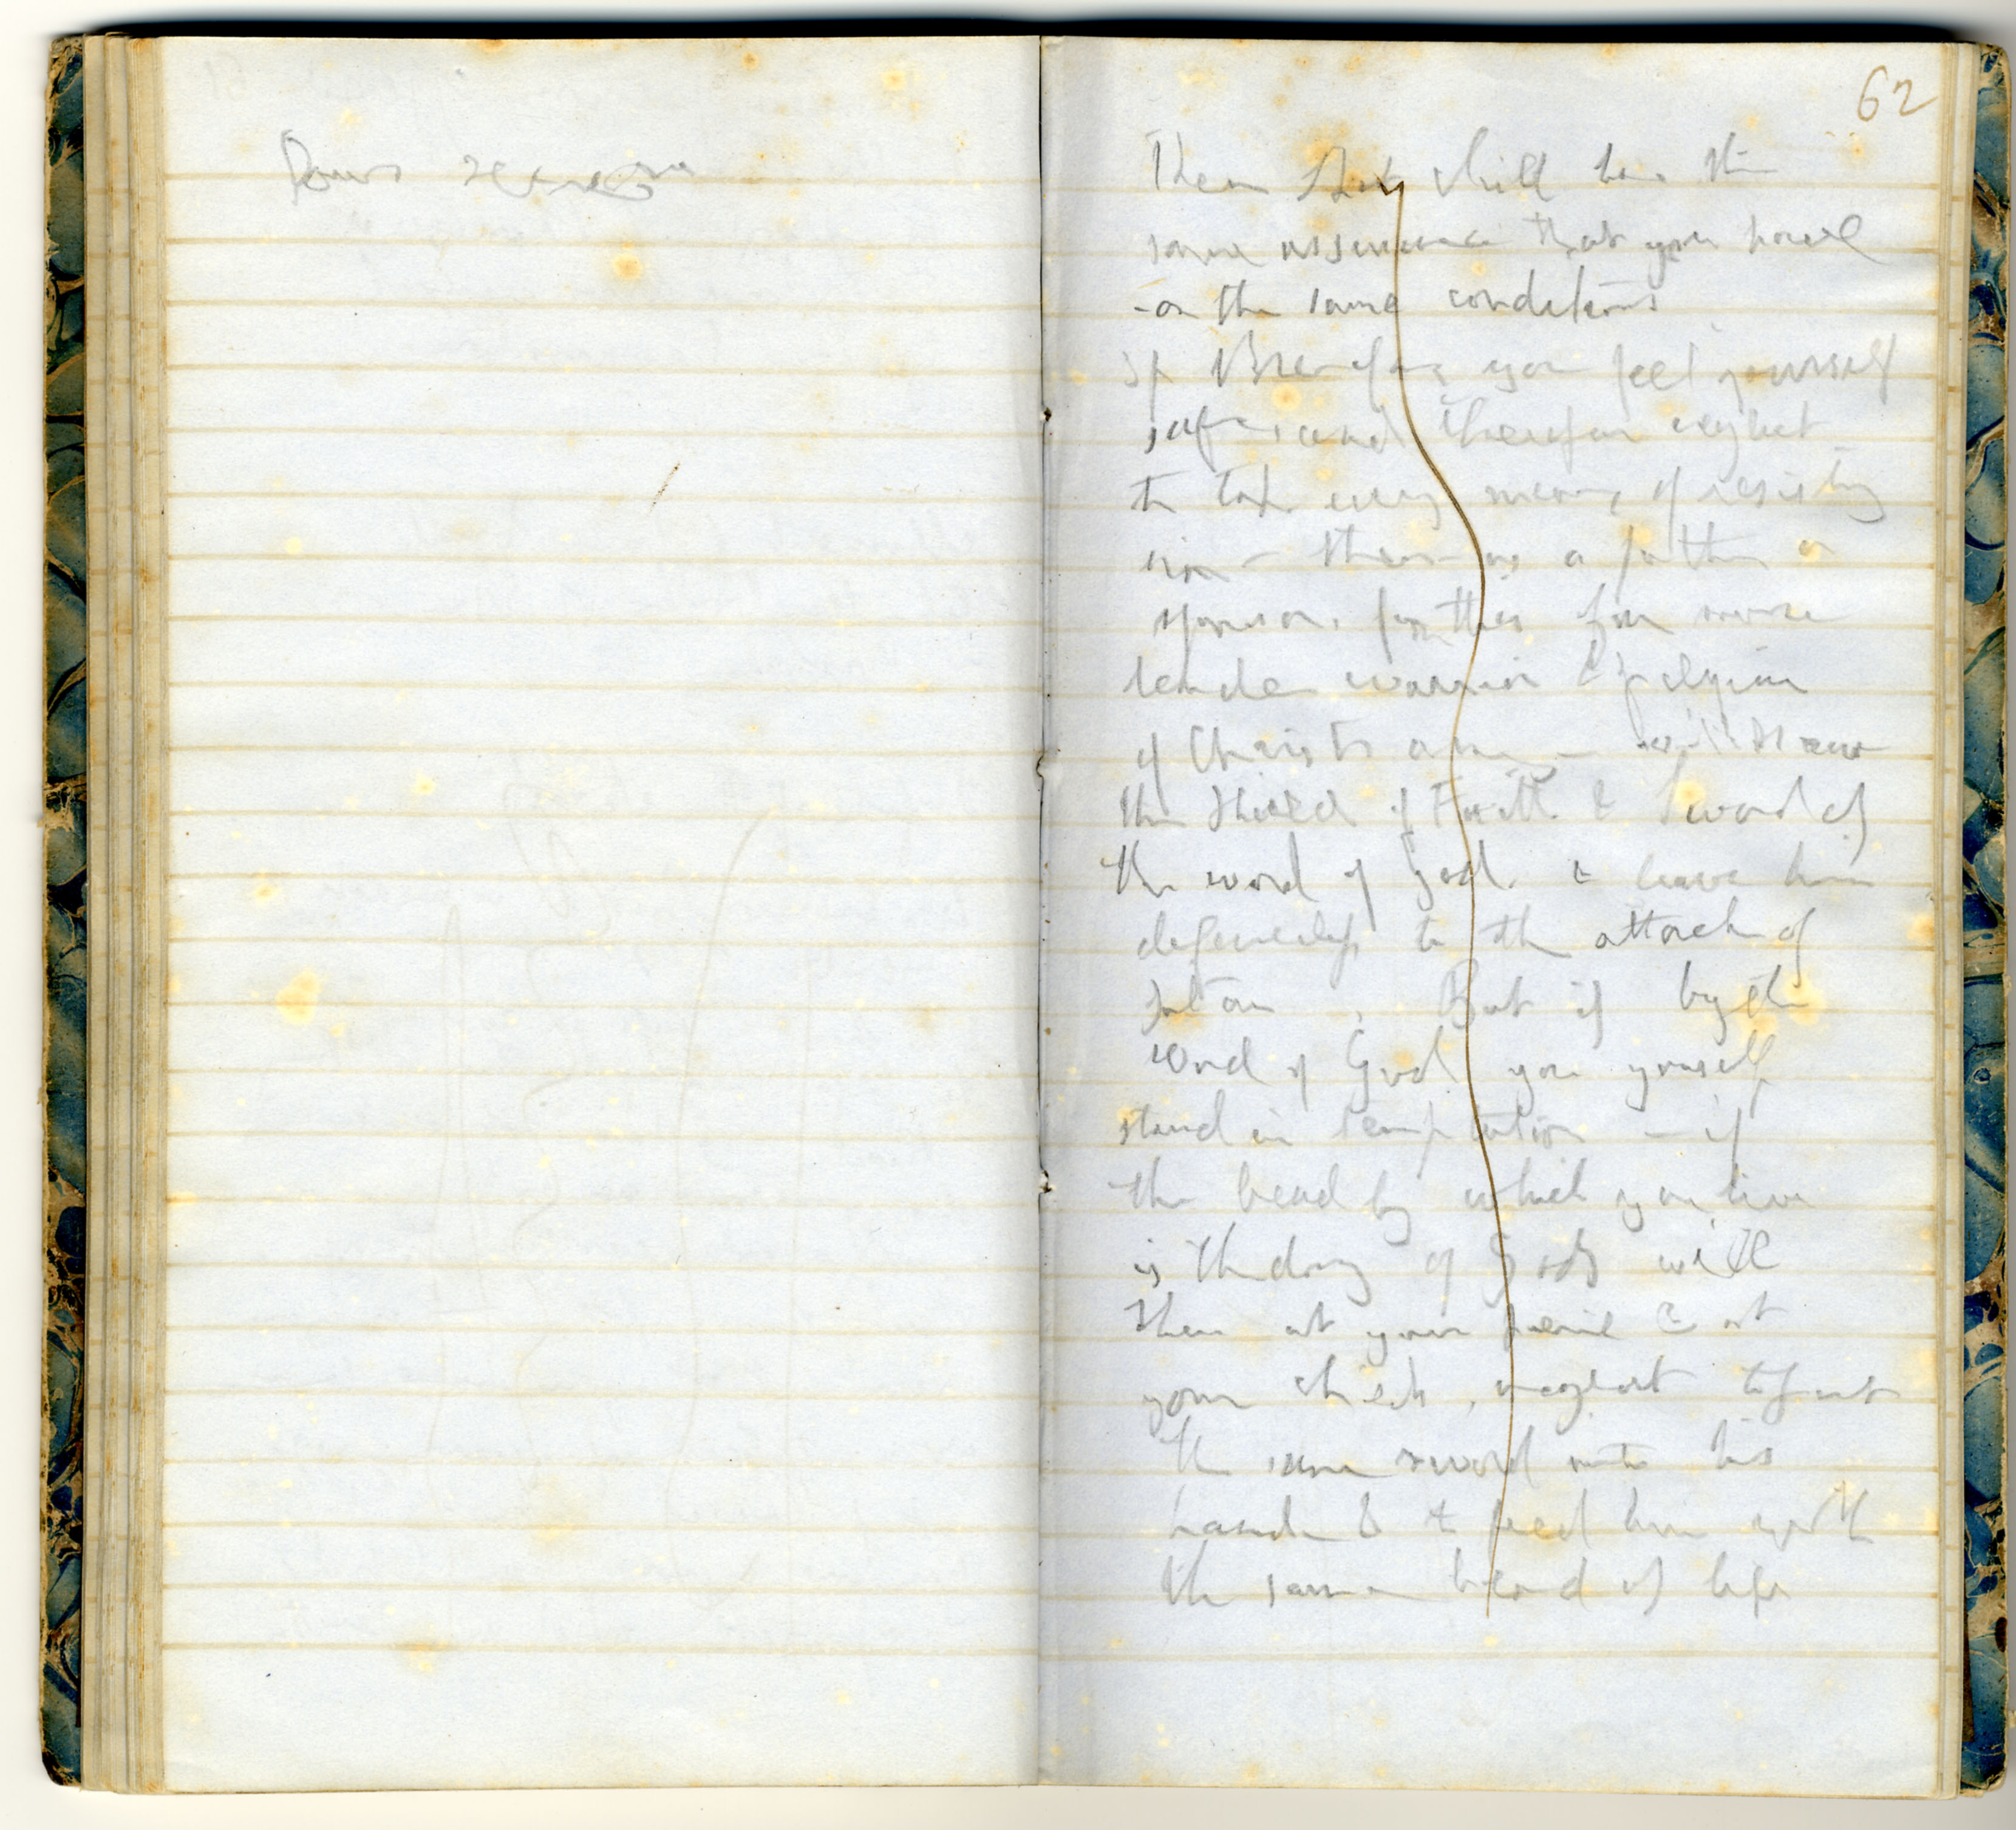 62
Then that child has the
same assurance that you have
- on the same conditions
If therefore you feel yourself
safe, and therefore neglect
to take every means of resisting
sin - then as a father or
sponsor, for this far more
tender warrior & pilgrim
of Christs army -
the Shield of Faith & Sword of
the word of God. & leave him
defenceless to the attack of
Satan. But if by the
Word of God you yourself
stand in temptation - if
the bread by which you live
is the doing of Gods will
Then at your peril & at
your , neglect to put
the same sword into his
hand & to feed him with
the same bread of life